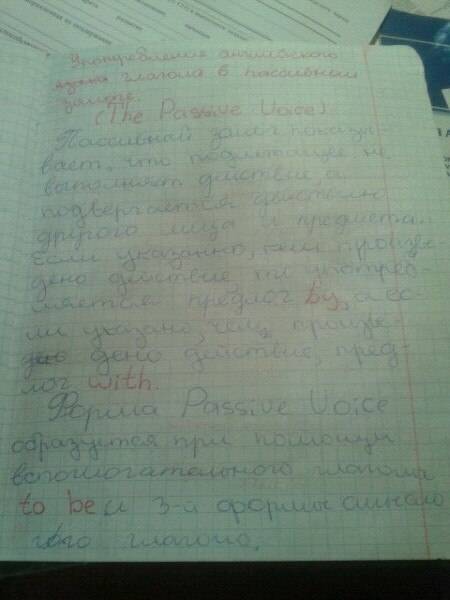 Употребление английского
глагола в пассивном
залоге.
(The Passive Voice)
Пассивный залог показы-
вает, что подлежащее не
выполняет действие, а
подвергается действию
другого лица и предмета.
Если указанно, кем произве-
дено действие то употреб-
ляется предлог by, а ес-
ли указано, чем, произве-
дено действие, пред-
лог with.
Форма Passive Voice
образуется при помощи
вспомогательного глагола
to be и 3-й формы смысло
гого глагола.